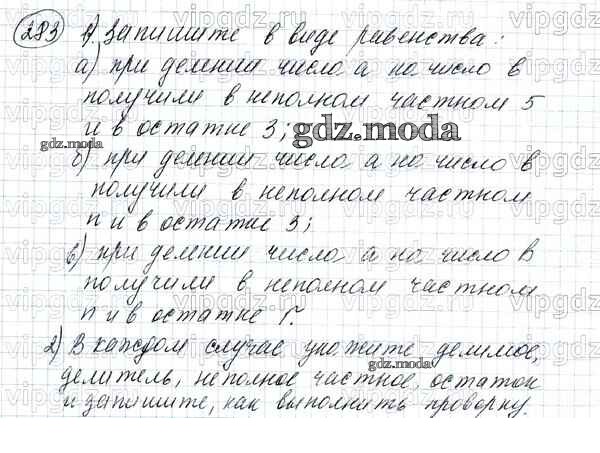 283 1). Запишите в виде равенства:
а) при делении числа а на число в
получили в неполном частном 5
и в остатке 3;
б) при делении числа а на число в
получили в неполном частном
n и в остатке 3;
в) при делении числа а на число в
получили в неполном частном
n и в остатке г.
2) В каждом случае укажите делимое,
делитель, неполное частное, остаток
и запишите, как выполнить проверку.
gdz.moda
gdz.moda
gdz.moda
gdz.moda